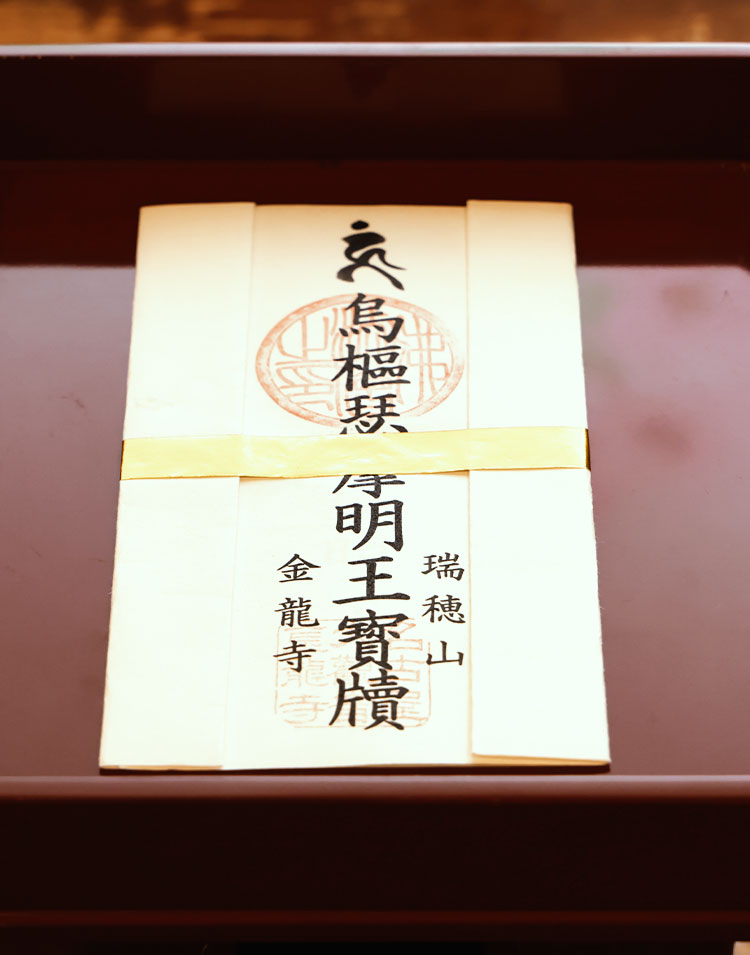 瑞穂山
烏樞瑟摩明王寶牘
金龍寺